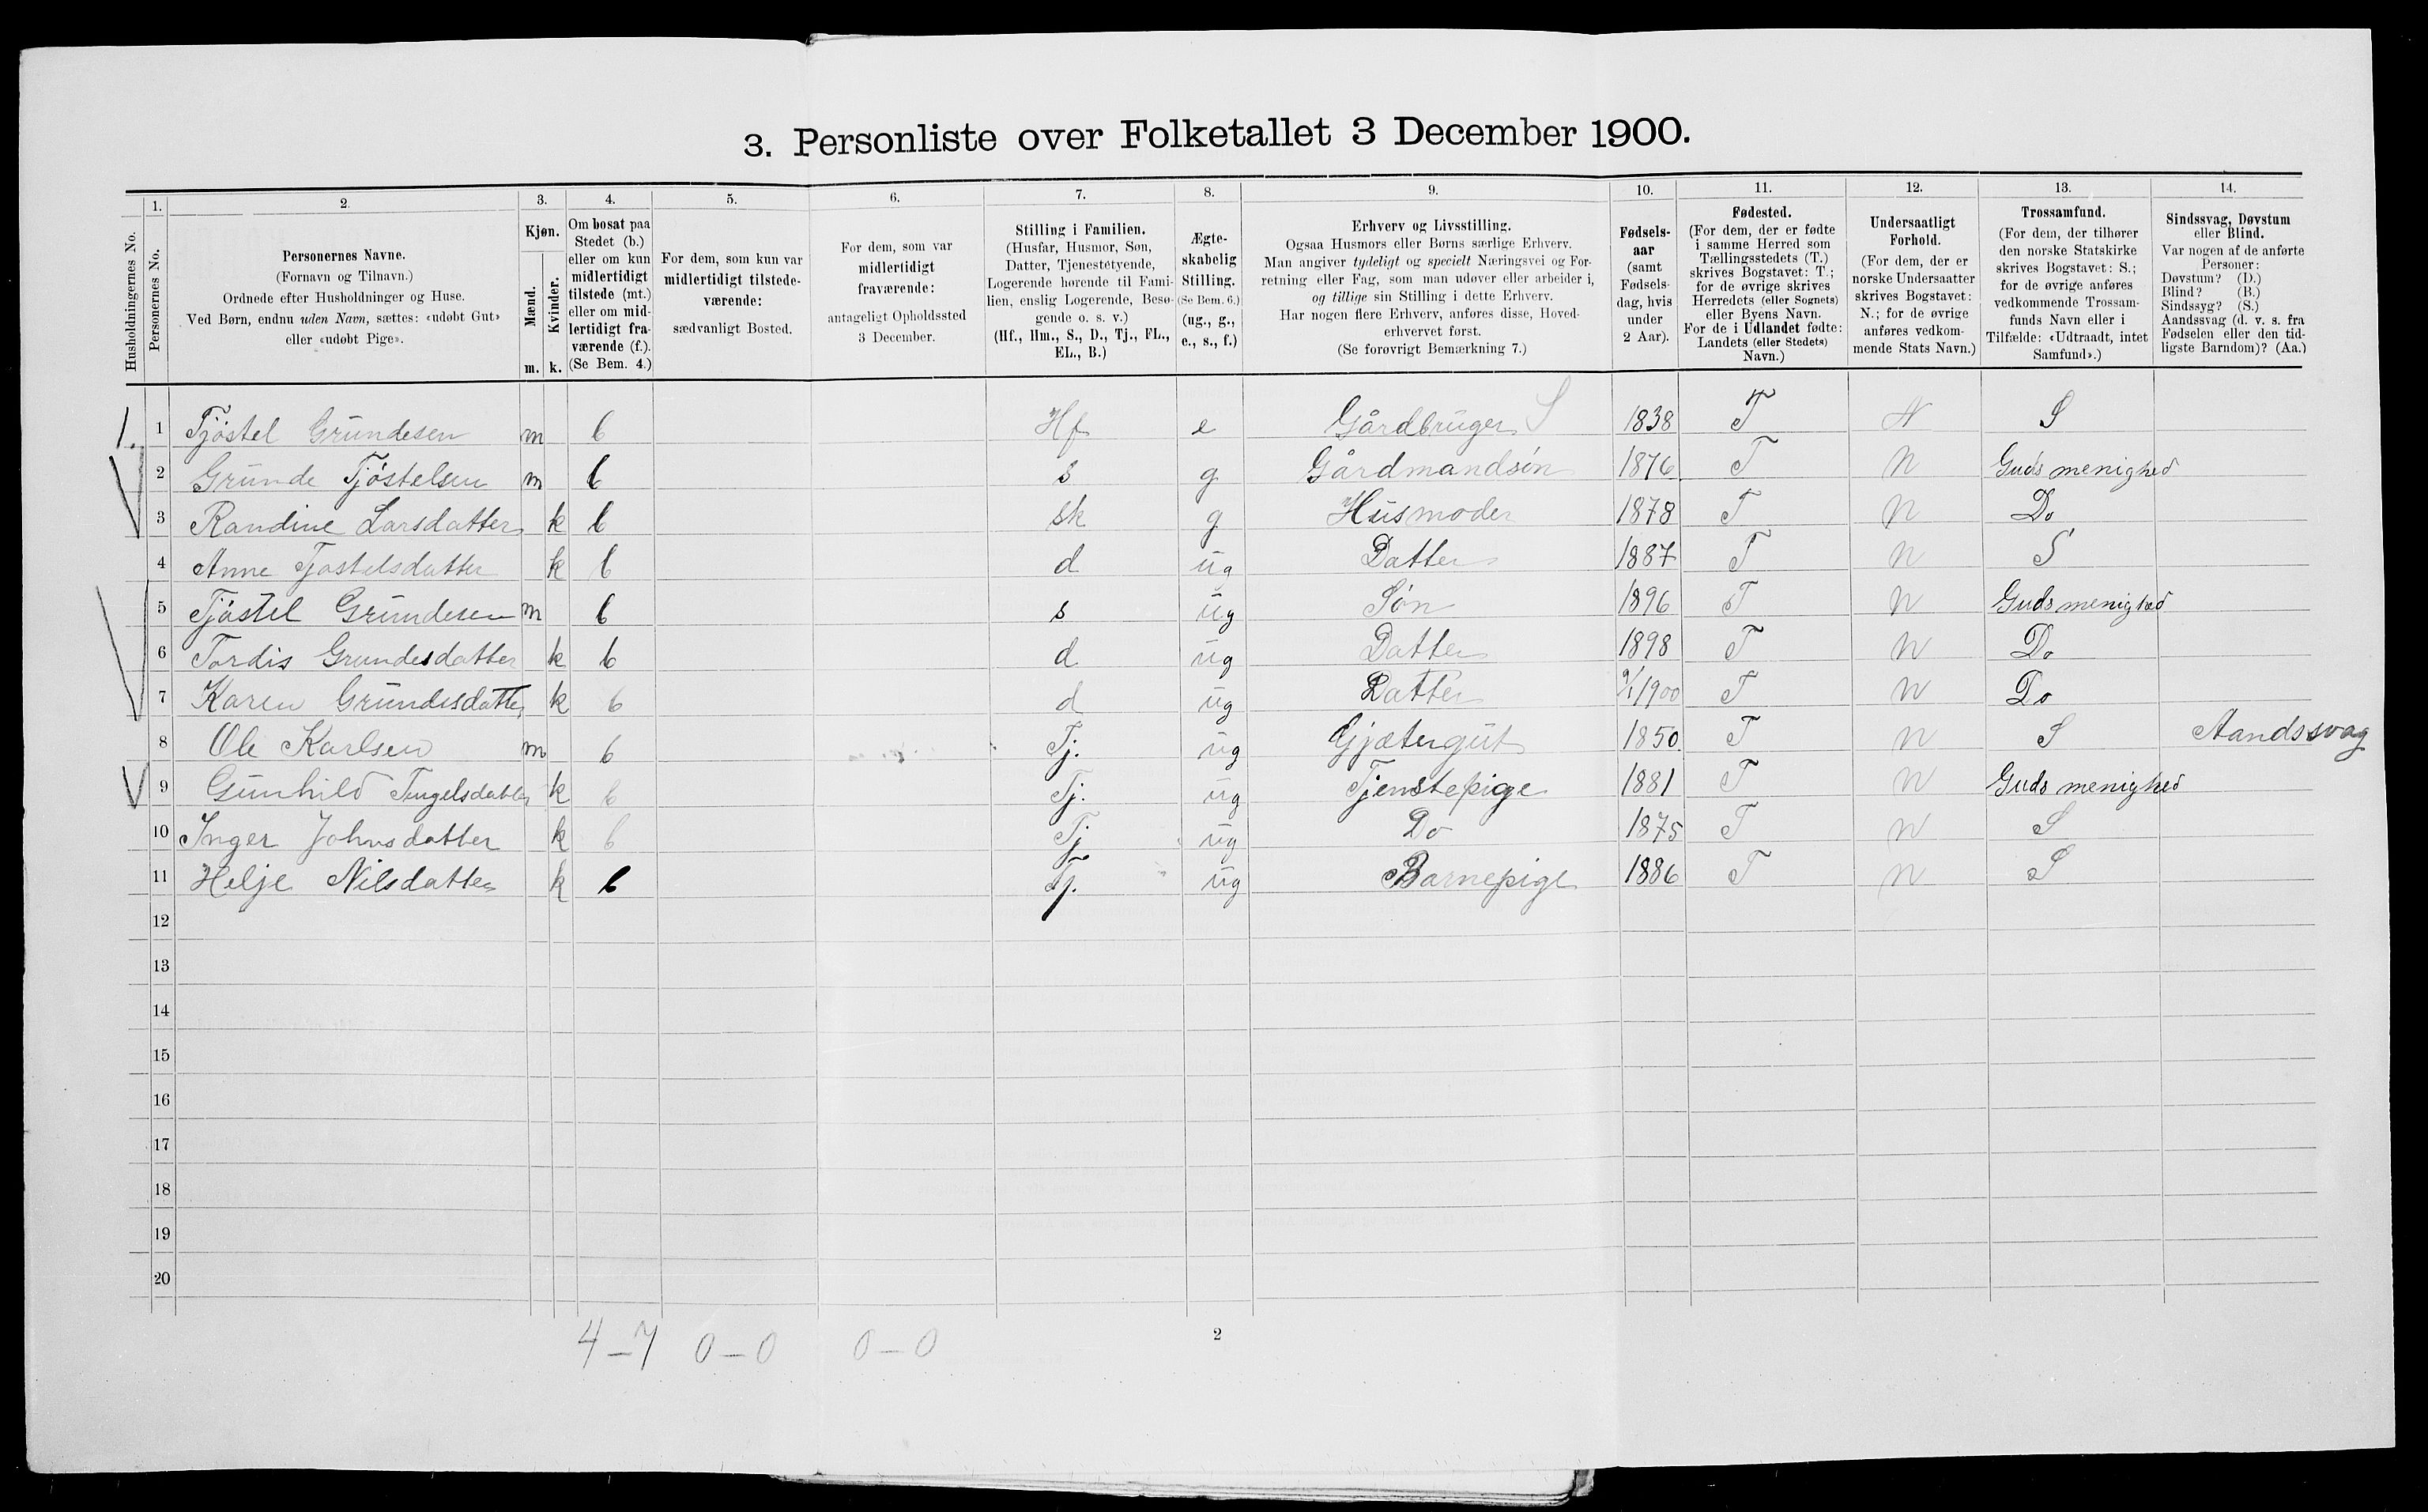 3. Personliste over Folketallet 3 December 1900.
Husholdningernes No.
1.
Personernes No.
2.
Personernes Navne.
(Fornavn og Tilnavn.)
Ordnede efter Husholdninger og Huse.
Ved Børn, endnu uden Navn, sættes: «udøbt Gut»
eller «udøbt Pige».
3.
Kjøn.
Mænd.
Kvinder.
m. k.
4.
Om bosat paa
Stedet (b.)
eller om kun
midlertidigt
tilstede (mt.)
eller om mid-
lertidigt fra-
værende (f.).
(Se Bem. 4.)
5.
For dem, som kun var
midlertidigt tilstede-
værende:
sædvanligt Bosted.
6.
For dem, som var
midlertidigt
fraværende:
antageligt Opholdssted
3 December.
7.
Stilling i Familien.
(Husfar, Husmor, Søn,
Datter, Tjenestetyende,
Logerende hørende til Fami-
lien, enslig Logerende, Besø-
gende o. s. v.)
(Hf., Hm., S., D., Tj., FL.,
EL., B.)
8.
Ægte-
skabelig
Stilling.
(Se Bem. 6.)
(ug., g.,
e., s., f.)
9.
Erhverv og Livsstilling.
Ogsaa Husmors eller Børns særlige Erhverv.
Man angiver tydeligt og specielt Næringsvei og For-
retning eller Fag, som man udøver eller arbeider i,
og tillige sin Stilling i dette Erhverv.
Har nogen flere Erhverv, anføres disse, Hoved-
erhvervet først.
(Se forøvrigt Bemærkning 7.)
10.
Fødsels-
aar
(samt
Fødsels-
dag, hvis
under
2 Aar).
11.
Fødested.
(For dem, der er fødte
i samme Herred som
Tællingsstedets (T.)
skrives Bogstavet: T.;
for de øvrige skrives
Herredets (eller Sognets)
eller Byens Navn.
For de i Udlandet fødte:
Landets (eller Stedets)
Navn.)
12.
Undersaatligt
Forhold.
(For dem, der er
norske Undersaatter
skrives Bogstavet:
N.; for de øvrige
anføres vedkom-
mende Stats Navn.)
13.
Trossamfund.
(For dem, der tilhører
den norske Statskirke
skrives Bogstavet: S.;
for de øvrige anføres
vedkommende Trossam-
funds Navn eller i
Tilfælde: «Udtraadt, intet
Samfund».)
14.
Sindssvag, Døvstum
eller Blind.
Var nogen af de anførte
Personer:
Døvstum? (D.)
Blind? (B.)
Sindssyg? (S.)
Aandssvag (d. v. s. fra
Fødselen eller den tid-
ligste Barndom)? (Aa.)
1. 1 Tjøstel Grundesen m b Hf e Gårdbruger S 1838 T N S
2 Grunde Tjøstelsen m b s g Gårdmandsøn 1876 T N Guds menighed
3 Randine Larsdatter k b sk g Husmoder 1878 T N Do
4 Anne Tjøstelsdatter k b d ug Datter 1887 T N S
5 Tjøstel Grundesen m b s ug Søn 1896 T N Guds menighed
6 Tordis Grundesdatter k b d ug Datter 1898 T N Do
7 Karen Grundesdatter k b d ug Datter 9/1 1900 T N Do
8 Ole Karlsen m b Tj. ug Gjætergut 1850. T N S Aandssvag
9 Gunhild k b Tj. ug Tjenstepige 1881 T N Guds menighed
10 Inger Johnsdatter k b Tj ug Do 1875 T N S
11 Helje Nilsdatter k b Tj. ug Barnepige 1886 T N S
12
13
14
15
16
17
18
19
20
4–7 0–0 0–0
2